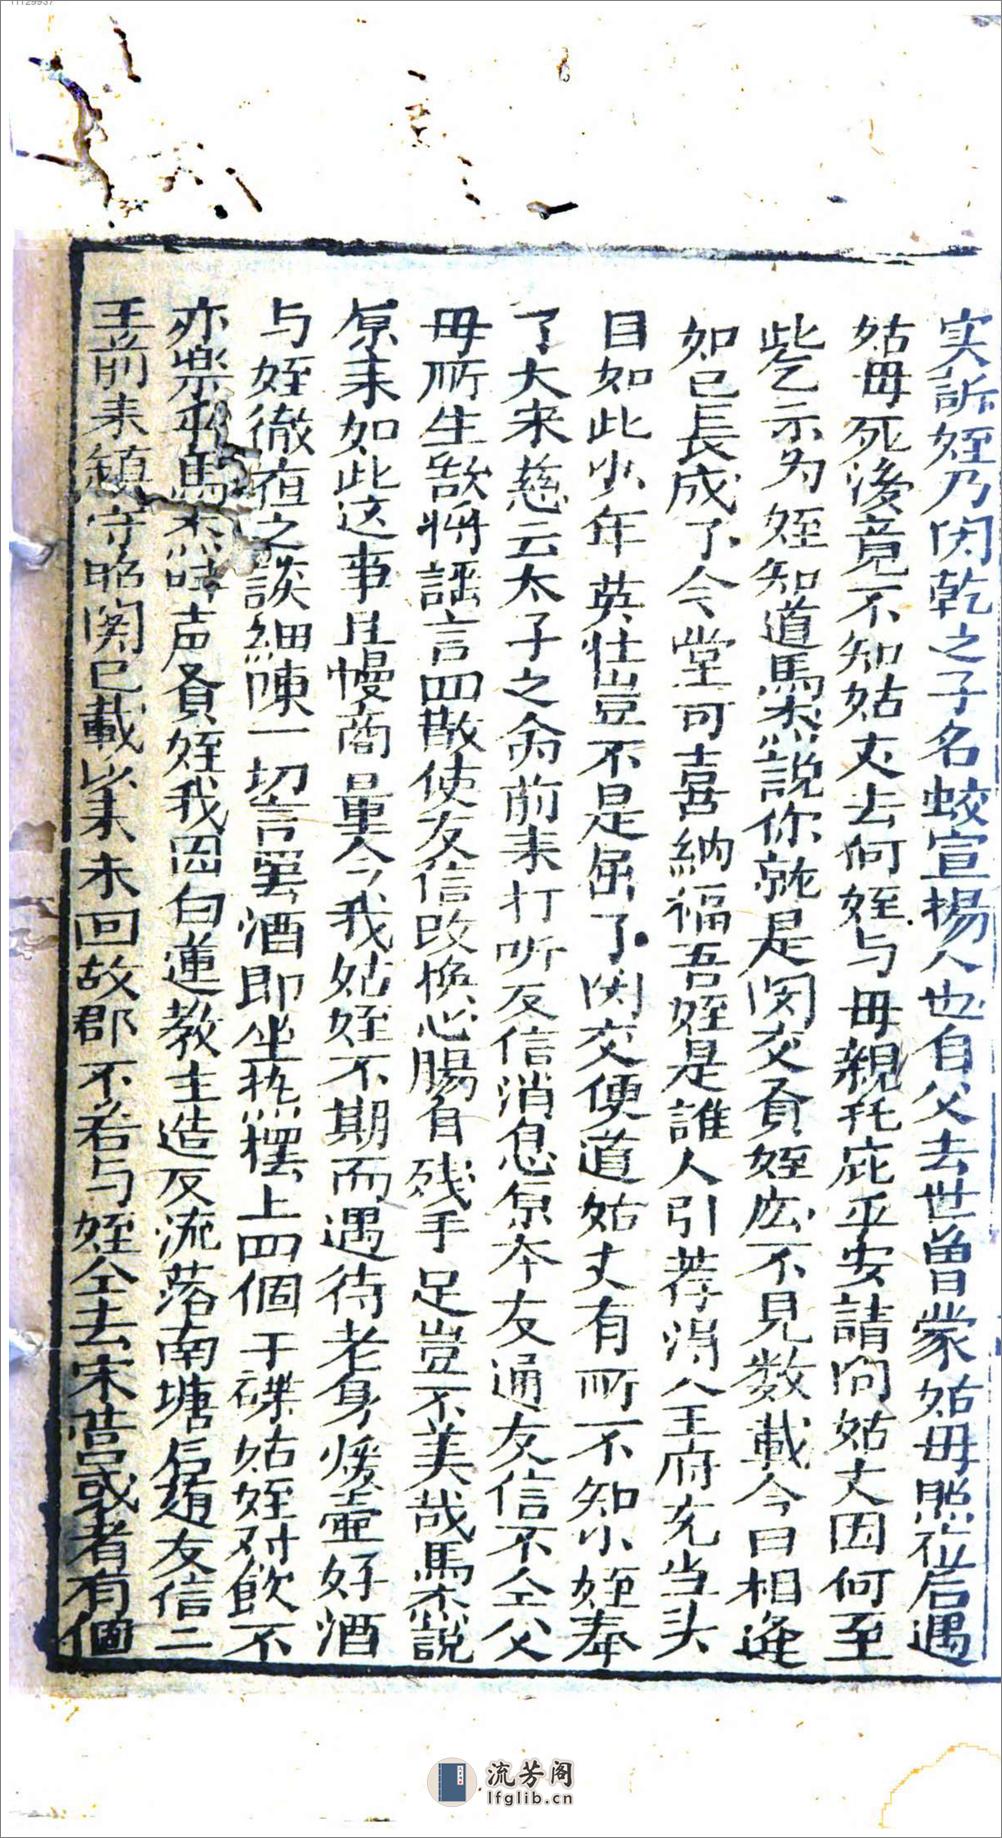 11129937
实訴姪乃闵乾之子名蛟宣揚人也自父去世曾蒙姑母照应后遇
姑毋死後竟不知姑丈去何姪与毋親托庇平安請问姑丈因何至
此乞示为姪知道馬杰說你就是闵交賢姪庅不見数載今日相逢
如已長成了今堂可喜納福吾姪是誰人引荐淂八王府充当头
目如此少年英壮豈不是屈了闵交便道姑丈有所不知小姪奉
了大宋慈云太子之命前来打听友信消息原本友通友信不仝父
毋所生故将謡言四散使友信改换心腸自残手足豈不美哉馬杰說
原来如此这事且慢商量今我姑姪不期而遇待老身煖壷好酒
与姪徹夜之談細陳一切言罢酒即坐热摆上四個干碟姑姪对飲不
亦楽乎馬杰呼声賢姪我因白蓮教主造反流落南塘后趙友信二
王前来鎮守昭関已載以来未回故郡不若与姪仝去宋营或者有個
流芳阁
lfglib.cn